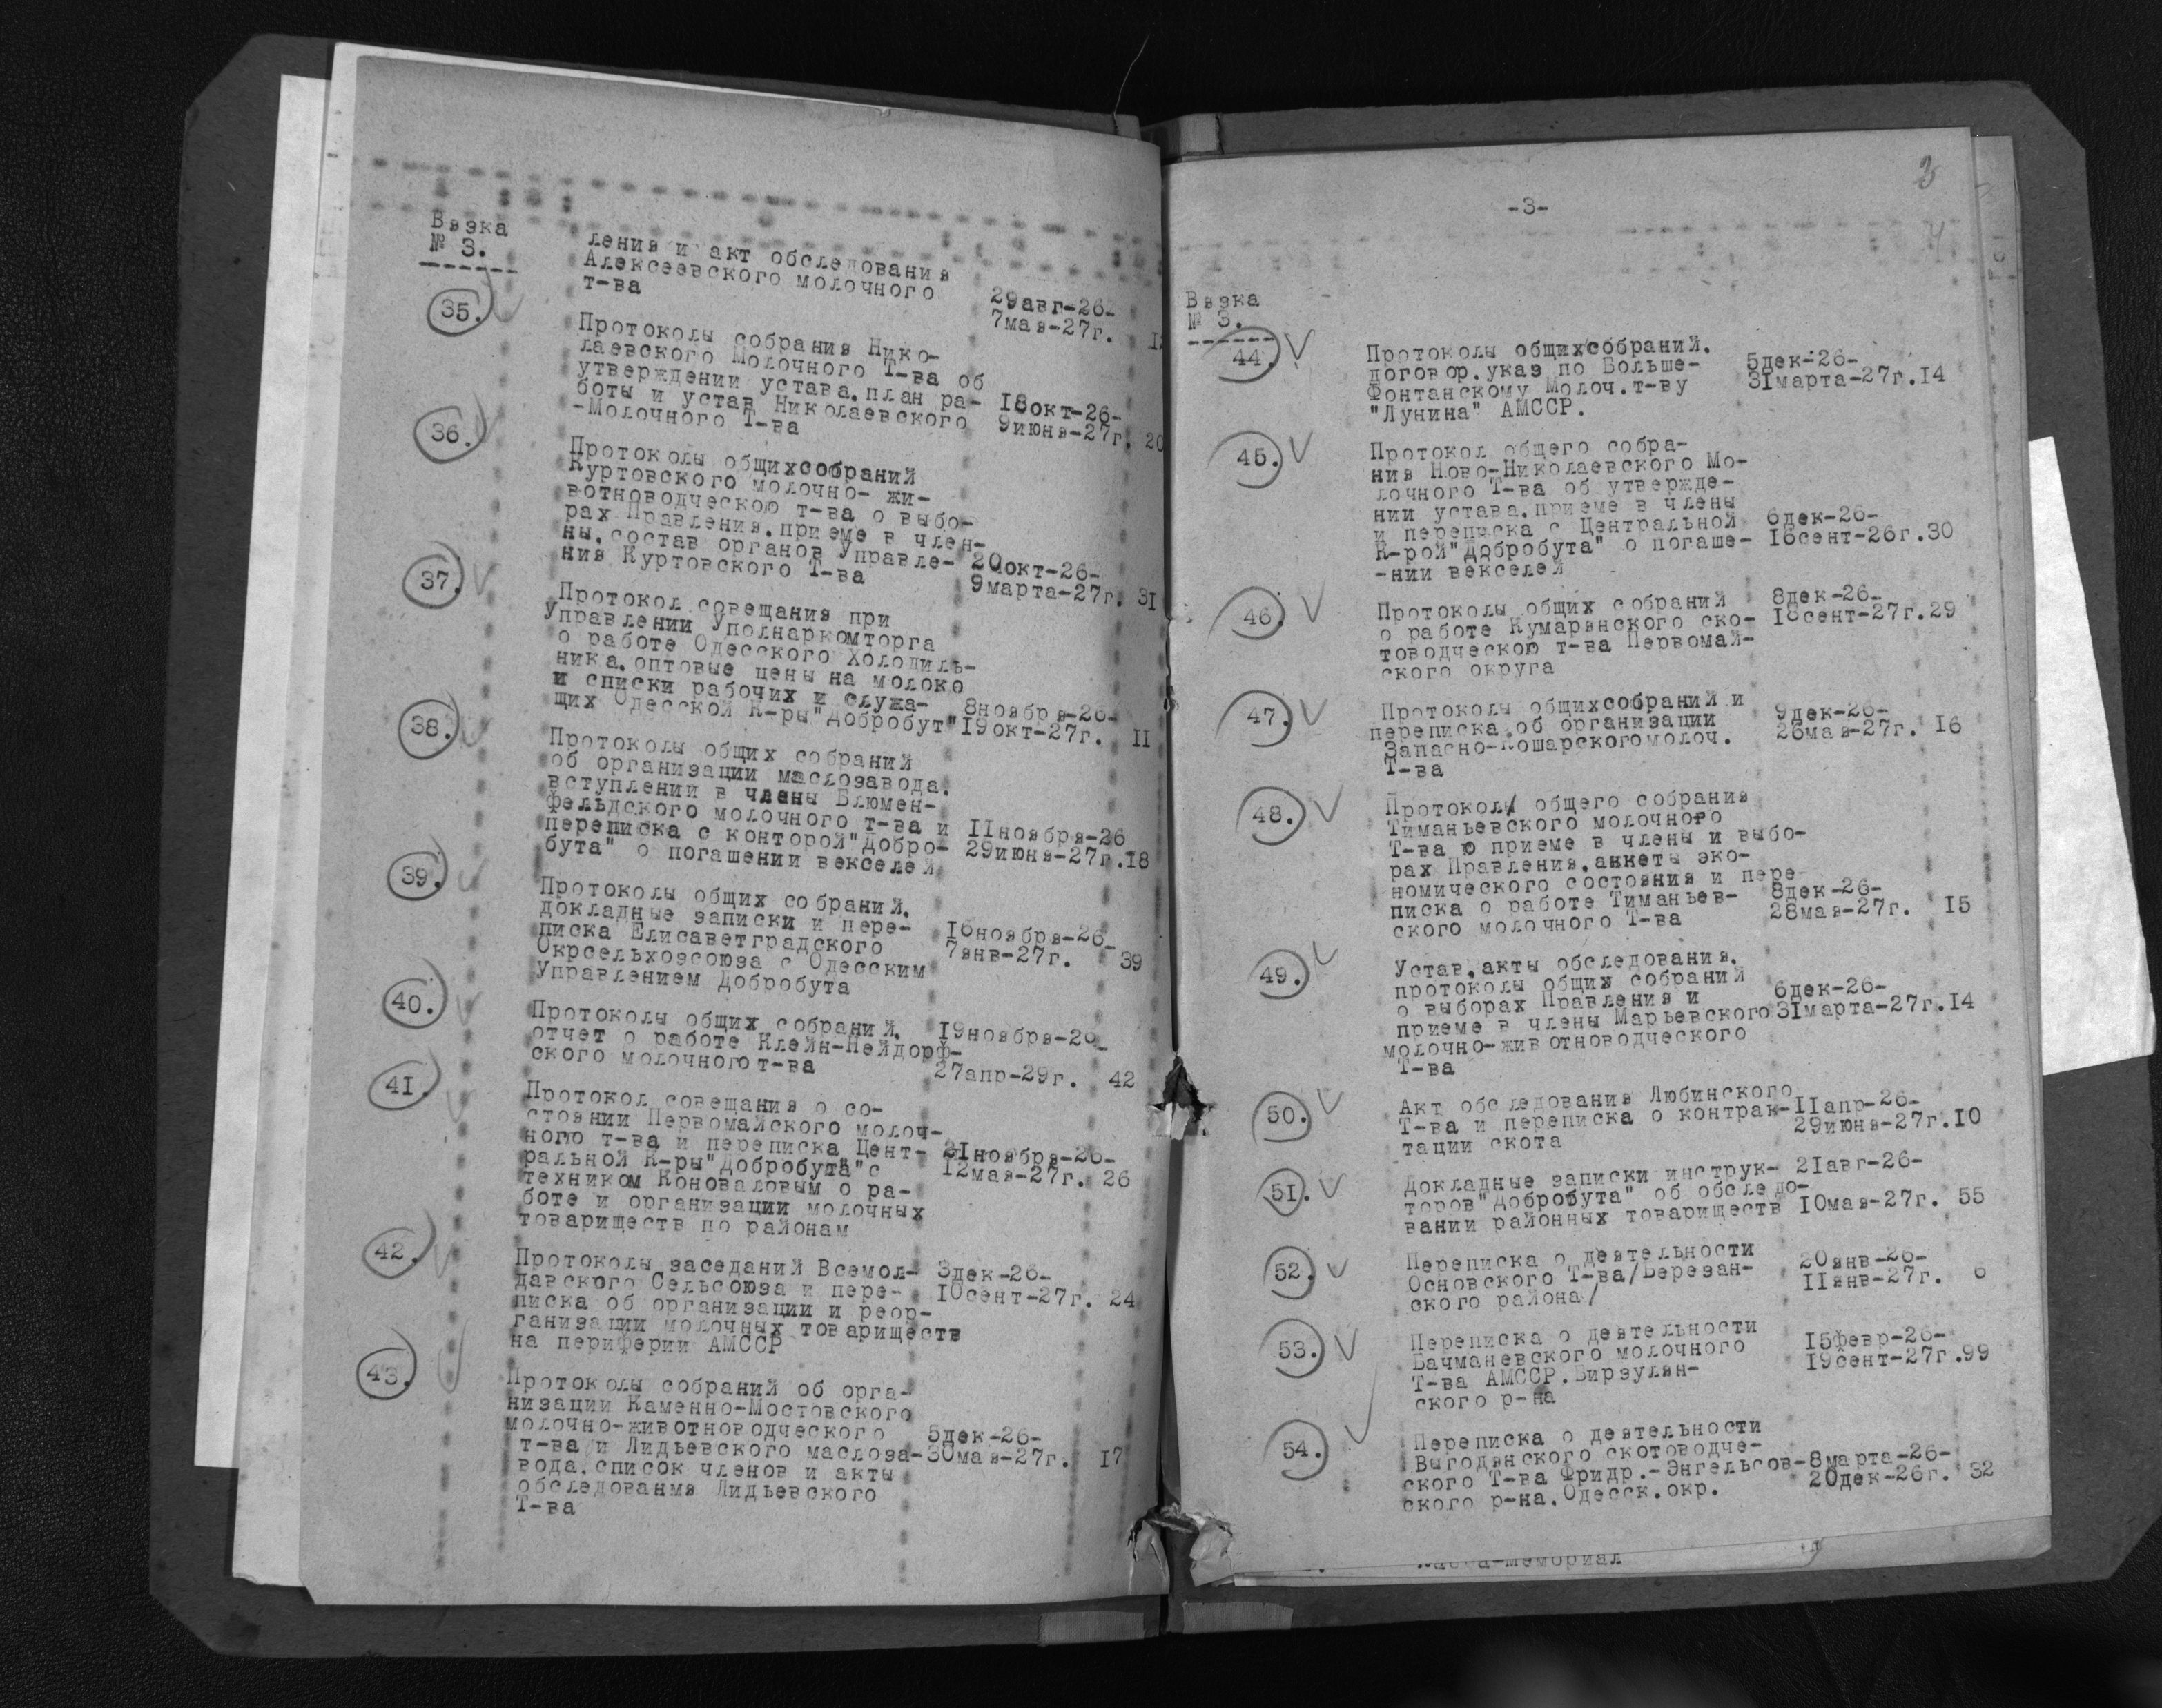 Вязка
№ 3.
ления и акт обследования
Алексеевского молочного
т-ва
29авг-26-
7мая-27г.
35.
Протоколы собрания Нико-
лаевского Молочного Т-ва об
утверждении устава.план ра-
боты и устав Николаевского
-Молочного Т-ва
18окт-26-
9июня-27г. 20
36.
Протоколы общихсобраний
Куртовского молочно- жи-
вотноводческою т-ва о выбо-
рах Правления.приеме в член-
ны.состав органов Управле-
ния Куртовского Т-ва
20окт-26-
9марта-27г. 31
37.
Протокол совещания при
Управлении Уполнаркомторга
о работе Одесского Холодиль-
ника.оптовые цены на молоко
и списки рабочих и служа-
щих Одесской К-ры"Добробут"
8ноября-26-
19окт-27г. 11
38.
Протоколы общих собраний
об организации маслозавода.
вступлении в члены Блюмен-
фельдского молочного т-ва и
переписка с конторой"Добро-
бута" о погашении векселей
11ноября-26
29июня-27г.18
39.
Протоколы общих собраний.
докладные записки и пере-
писка Елисаветградского
Окрсельхозсоюза с Одесским
Управлением Добробута
16ноября-26-
7янв-27г. 39
40.
Протоколы общих собраний.
отчет о работе Клейн-Нейдорф-
ского молочногот-ва
19ноября-26-
27апр-29г. 42
41.
Протокол совещания о со-
стоянии Первомайского молоч-
ного т-ва и переписка Цент-
ральной К-ры"Добробута"с
техником Коноваловым о ра-
боте и организации молочных
товариществ по районам
21ноября-26-
12мая-27г. 26
42.
Протоколы заседаний Всемол-
давского Сельсоюза и пере-
писка об организации и реор-
ганизации молочных товариществ
на периферии АМССР
3дек-26-
10сент-27г. 24
43.
Протоколы собраний об орга-
низации Каменно-Мостовского
молочно-животноводческого
т-ва и Лидьевского маслоза-
вода.список членов и акты
обследования Лидьевского
Т-ва
5дек-26-
30мая-27г. 17
3
-3-
4
Вязка
№ 3.
44.
Протоколы общихсобраний.
договор.указ по Больше-
Фонтанскому Молоч.т-ву
"Лунина" АМССР.
5дек-26-
31марта-27г.14
45.
Протокол общего собра-
ния Ново-Николаевского Мо-
лочного Т-ва об утвержде-
нии устава.приеме в члены
и переписка с Центральной
К-рой"Добробута" о погаше-
-нии векселей
6дек-26-
16сент-26г.30
46.
Протоколы общих собраний
о работе Кумарянского ско-
товодческою т-ва Первомай-
ского округа
8дек-26-
18сент-27г.29
47.
Протоколы общихсобраний и
переписка об организации
Запасно-Кошарскогомолоч.
Т-ва
9дек-26-
26мая-27г. 16
48.
Протокол/ общего собрания
Тиманьевского молочного
Т-ва о приеме в члены и выбо-
рах Правления.анкеты эко-
номического состояния и пере-
писка о работе Тиманьев-
ского молочного Т-ва
8дек-26-
28мая-27г. 15
49.
Устав.акты обследования.
протоколы общих собраний
о выборах Правления и
приеме в члены Марьевского
молочно-животноводческого
Т-ва
6дек-26-
31марта-27г.14
50.
Акт обследования Любинского
Т-ва и переписка о контрак-
тации скота
11апр-26-
29июня-27г.10
51.
Докладные записки инструк-
торов"Добробута" об обследо-
вании районных товариществ
21авг-26-
10мая-27г. 55
52.
Переписка о деятельности
Основского Т-ва/Березан-
ского района/
20янв-26-
11янв-27г. 6
53.
Переписка о деятельности
Бачманевского молочного
Т-ва АМССР.Бирзулян-
ского р-на
15февр-26-
19сент-27г.99
54.
Переписка о деятельности
Выгодянского скотоводче-
ского Т-ва Фридр.-Энгельсов-
ского р-на.Одесск.окр.
8марта-26-
20дек-26г. 32